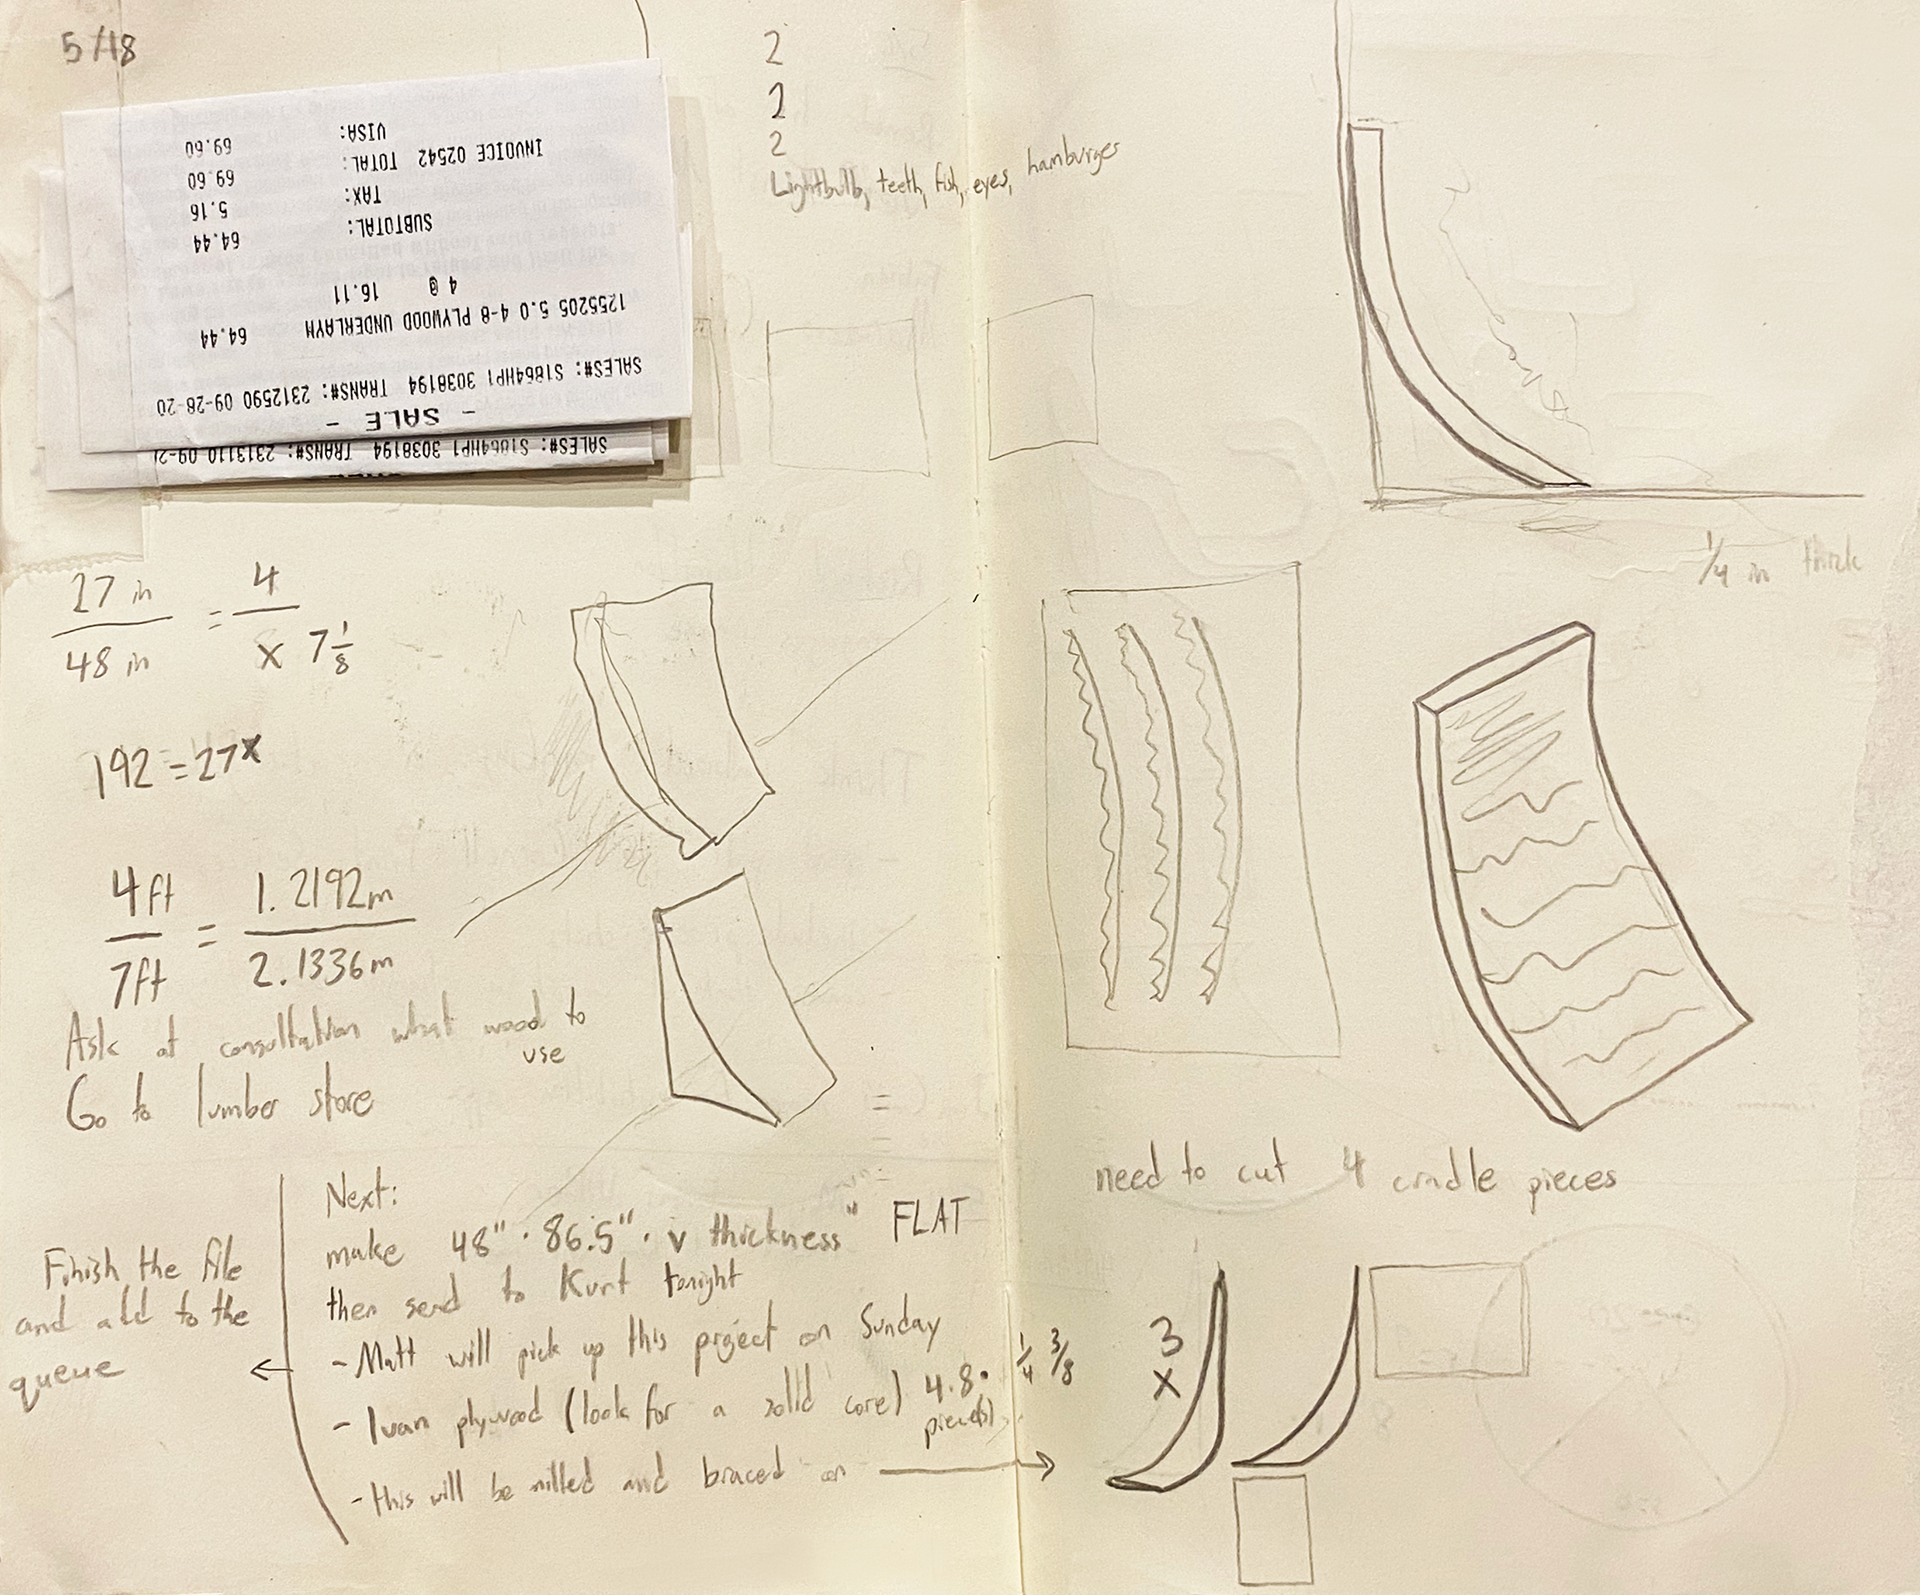 5/18
- SALE -
SALES#: S1864HP1 3038194 TRANS#: 2312590 09-28-20
1255205 5.0 4-8 PLYWOOD UNDERLAYM 64.44
4 @ 16.11
SUBTOTAL: 64.44
TAX: 5.16
INVOICE 02542 TOTAL: 69.60
VISA: 69.60
SALES#: S1864HP1 3038194 TRANS#: 2313110 09-2
2
2
2
Lightbulb, teeth, fish, eyes, hamburger
27 in / 48 in = 4 / x 7 1/8
192 = 27x
4ft / 7ft = 1.2192m / 2.1336m
Ask at consultation what wood to
use
Go to lumber store
Finish the file
and add to the
queue
Next:
make 48" · 86.5" · v thickness" FLAT
then send to Kurt tonight
- Matt will pick up this project on Sunday
- luan plywood (look for a solid core) 4·8· 1/4 3/8
piece(s)
- this will be milled and braced on
1/4 in thick
need to cut 4 cradle pieces
3
x